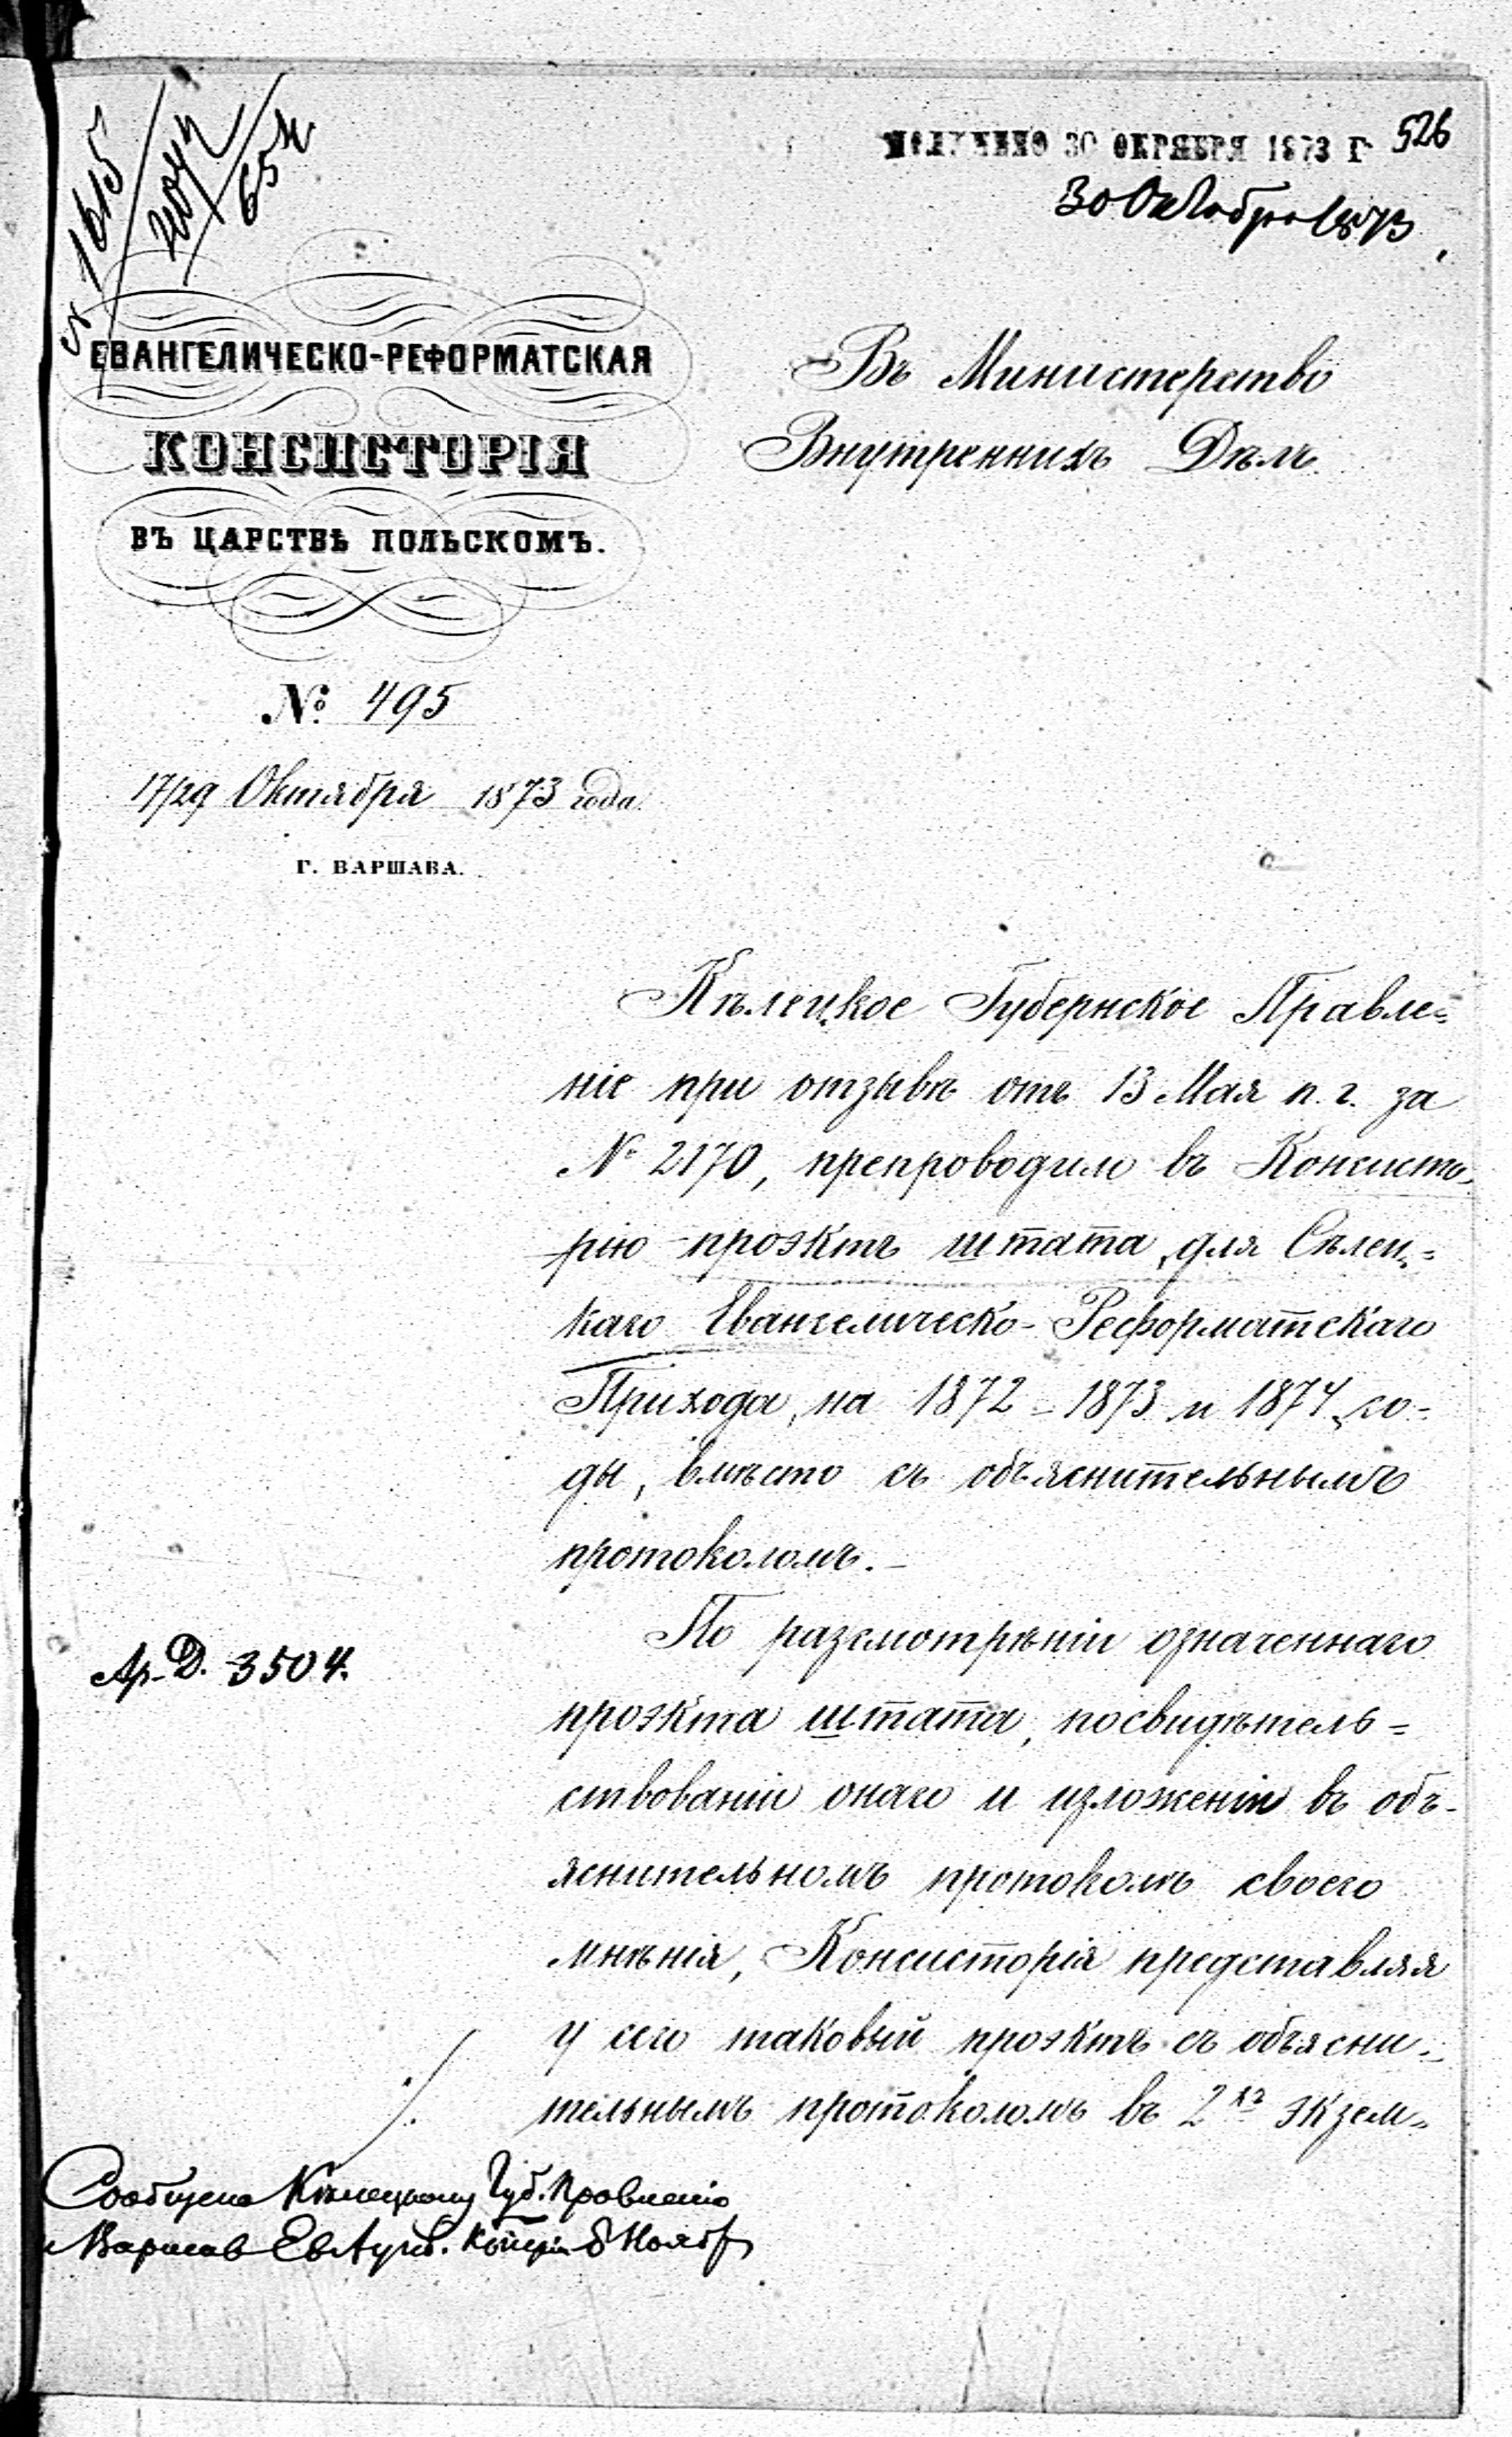 526
ПОЛУЧЕНО 30 ОКТЯБРЯ 1873 Г
30 Октября 1873
№ 1615
ЕВАНГЕЛИЧЕСКО-РЕФОРМАТСКАЯ
КОНСИСТОРІЯ
ВЪ ЦАРСТВѢ ПОЛЬСКОМЪ.
№ 495
17/29 Октября 1873 года.
Г. ВАРШАВА.
Въ Министерство
Внутреннихъ Дѣлъ.
Кѣлецкое Губернское Правле=
ніе при отзывѣ отъ 13 Мая п. г. за
№ 2170, препроводило въ Консисто-
рію проэктъ штата, для Сѣлец=
каго Евангелическо-Реформатскаго
Прихода, на 1872 - 1873 и 1874 го-
ды, вмѣсто съ объяснительнымъ
протоколомъ.-
По разсмотрѣніи означеннаго
проэкта штата, посвидѣтель=
ствованіи онаго и изложеніи въ объ-
яснительномъ протоколѣ своего
мнѣнія, Консисторія представляя
у сего таковый проэктъ съ объясни-
тельнымъ протоколомъ въ 2хъ экзем-
Ар. Д. 3504.
Сообщено Кѣлецкому Губ. Правленію
и Варшав Ев